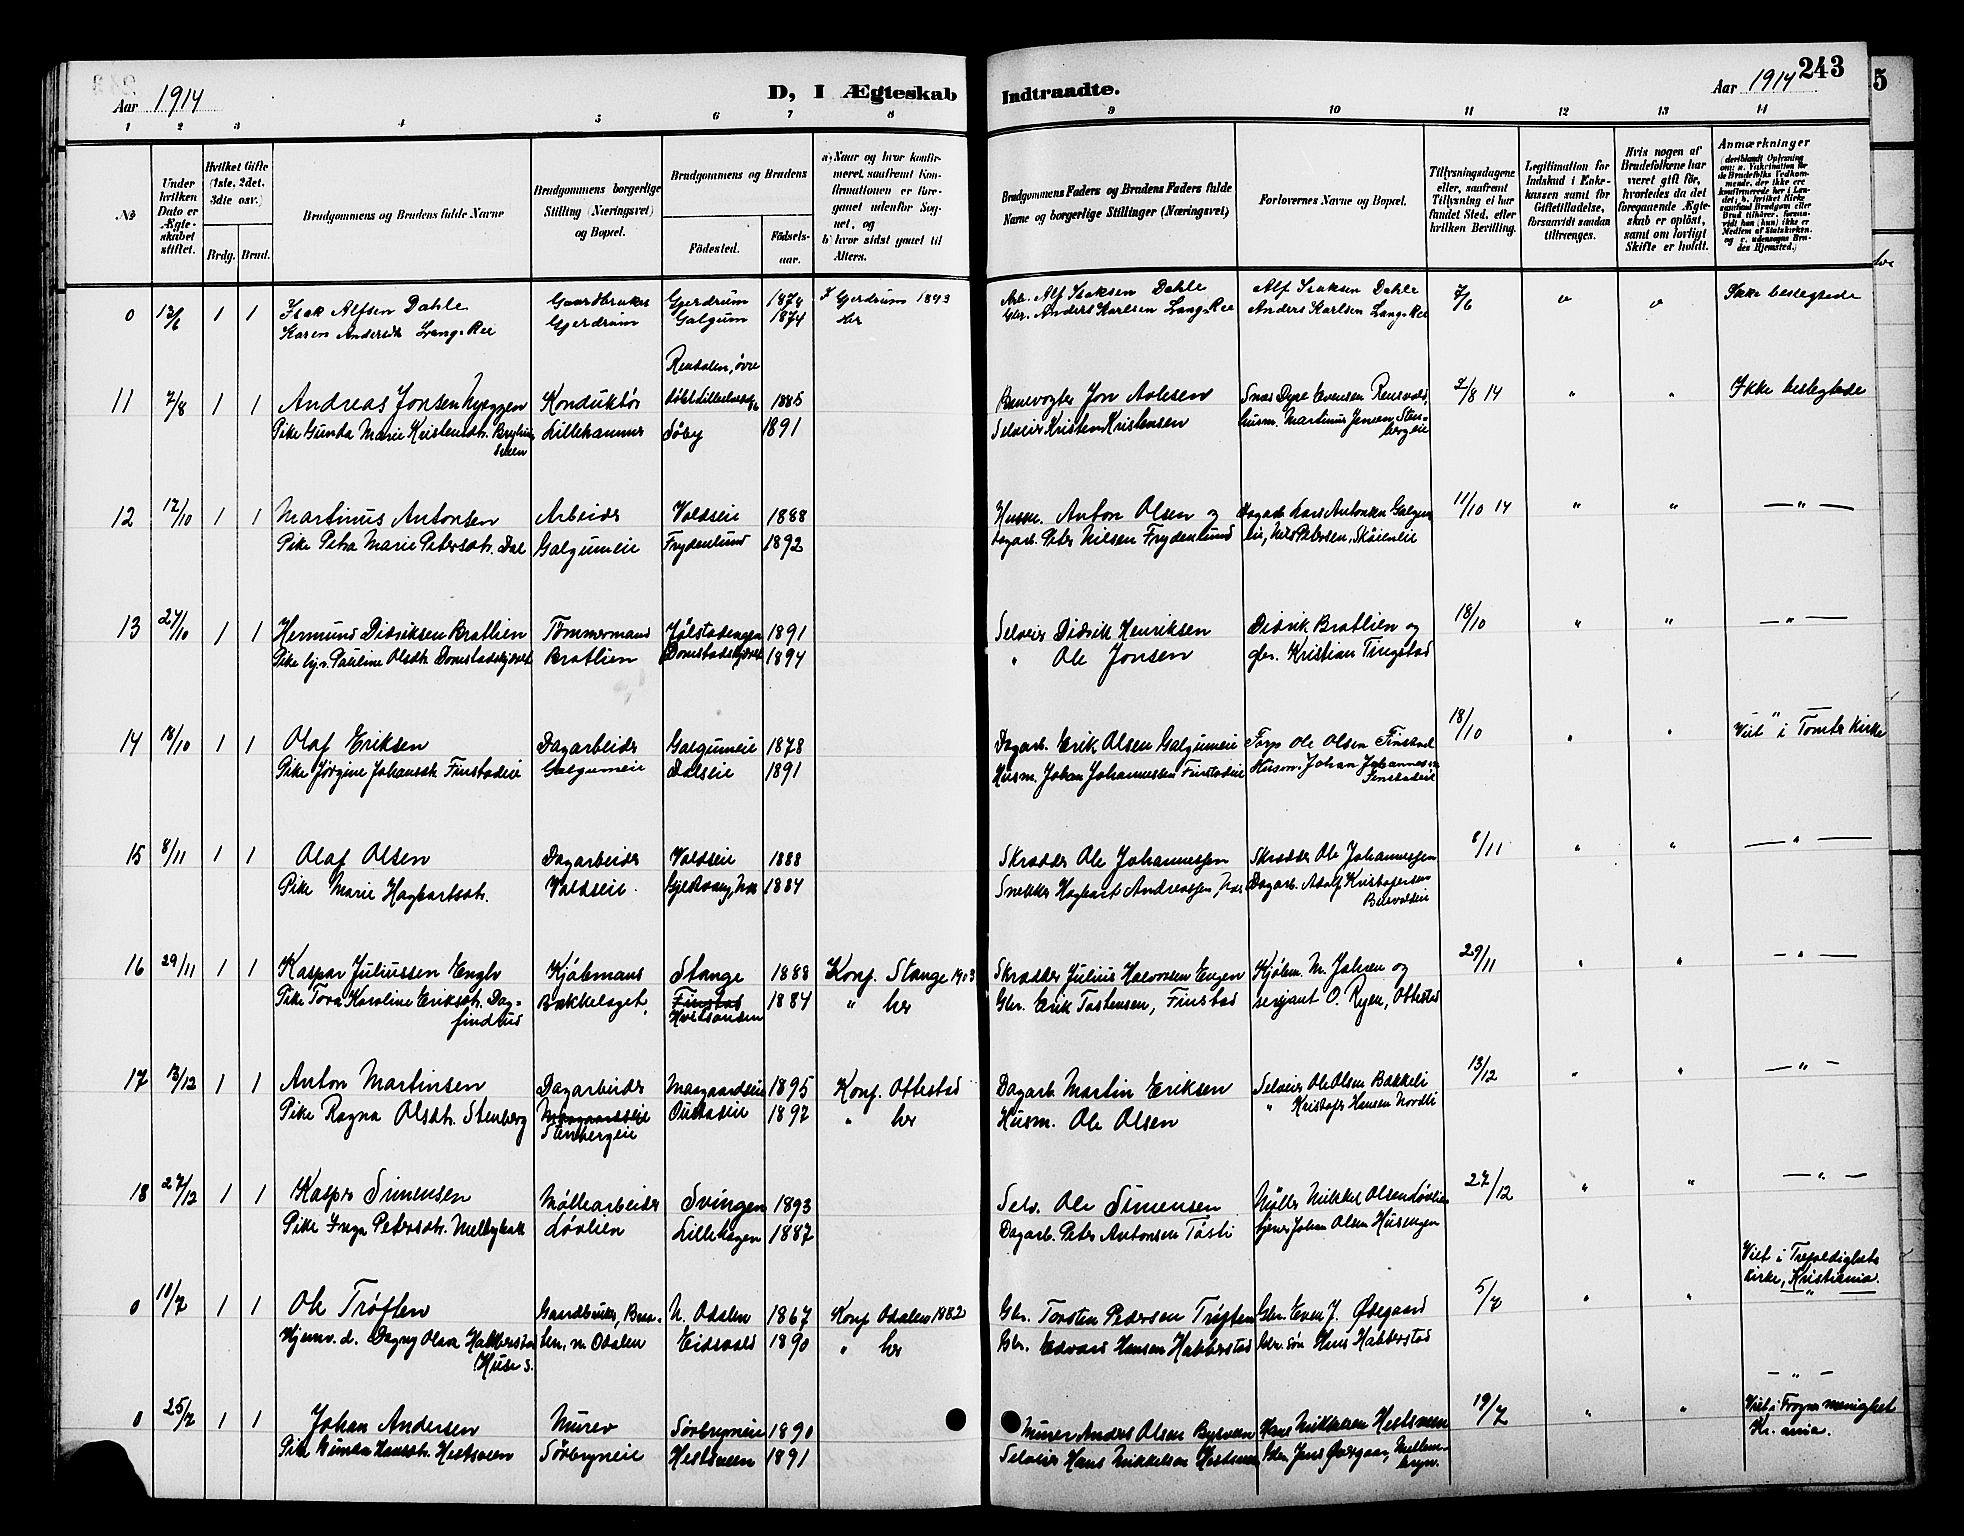 Aar 1914
D, I Ægteskab
Indtraadte.
Aar 1914
243
5
1 2 3 4 5 6 7 8
9 10 11 12 13 14
No
Under hvilken Dato er Ægteskabet stiftet.
Hvilket Gifte (1ste, 2det, 3die osv.)
Brdg. Brud.
Brudgommens og Brudens fulde Navne
Brudgommens borgerlige Stilling (Næringsvei) og Bopæl.
Brudgommens og Brudens
Födested.
Födselsaar.
a) Naar og hvor konfirmeret, saafremt Konfirmationen er foregaaet udenfor Sognet, og
b) hvor sidst gaaet til Alters.
Brudgommens Faders og Brudens Faders fulde Navne og borgerlige Stillinger (Næringsvei)
Forlovernes Navne og Bopæl.
Tillysningsdagene eller, saafremt Tillysning ei har fundet Sted, efter hvilken Bevilling.
Legitimation for Indskud i Enkekassen samt for Giftetilladelse, forsaavidt saadan tiltrænges.
Hvis nogen af Brudefolkene har været gift før, hvorledes da det foregaaende Ægteskab er opløst, samt om lovligt Skifte er holdt.
Anmærkninger
0 13/6 1 1 Isak Alfsen Dahle Gaardbruker Gjerdrum 1874 Gjerdrum 1893 Arb. Alf Isaksen Dahle Alf Isaksen Dahle 7/6 Ikke beslegtede
Karen Andersdt. Lang-Ree Gjerdrum Galgum 1874 her Gbr. Anders Karlsen Lang-Ree Anders Karlsen Lang-Ree
Rendalen, øvre
11 7/8 1 1 Andreas Jonsen Nyeggen Konduktør 1885 Banevogter Jon Avlesen 2/8 14 " " Ikke beslegtede
Pike Gunda Marie Kristensdt. Lillehammer Søby 1891 Selveier Kristen Kristensen Husm. Martinus Jensen, Stenbergeie
12 17/10 1 1 Martinus Antonsen Arbeider Voldseie 1888 Husm. Anton Olsen og Dagarb. Lars Antonsen Galgumeie, 11/10 14 " " — " —
Pike Petra Marie Petersdt. Dal Galgumeie Frydenlund 1892 Dagarb. Peter Nilsen Frydenlund Nils Petersen, Skøieneie
13 24/10 1 1 Hermund Didriksen Bratlien Tømmermand Jølstadengen 1891 Selveier Didrik Henriksen Didrik Bratlien og 18/10 " " — " —
Pike Pauline Olsdt. Bratlien 1894 " Ole Jonsen gbr. Kristian Tingstad
14 18/10 1 1 Olaf Eriksen Dagarbeider Galgumeie 1878 Dagarb. Erik Olsen Galgumeie Ole Olsen Finstad 18/10 " " Viet i Tomter Kirke
Pike Jørgine Johansdt. Finstadeie Galgumeie Dalseie 1891 Husm. Johan Johannessen Finstadeie Husm. Johan Johannessen Finstadeie
15 8/11 1 1 Olaf Olsen Dagarbeider Voldseie 1888 Skrædder Ole Johannessen Skrædder Ole Johannessen 8/11 " " — " —
Pike Marie Hagbartsdt. Voldseie. 1884 Snekker Hagbart Andreassen, Nes Dagarb. Adolf Kristofersen
16 29/11 1 1 Kaspar Juliussen Engly Kjøbmand Stange 1888 Konf. Stange 1903 Skrædder Julius Halvorsen Engen Kjøbm. M. Johsen og 29/11 " " — " —
Pike Tora Karoline Eriksdt. Dagfindrud Bækkelaget, Finstad 1884 " her Gbr. Erik Tostensen, Finstad serjant O. Ryen, Ottestad
17 13/12 1 1 Anton Martinsen Dagarbeider Maagaardseie 1895 Konf. Ottestad Dagarb. Martin Eriksen Selveier Ole Olsen Bakkeli 13/12 " " — " —
Pike Ragna Olsdt. Stenberg Maagaardseie Oustadeie 1892 " her Husm. Ole Olsen " Kristofer Hansen Nordli
Stenbergeie
18 27/12 1 1 Kasper Simensen Møllearbeider Svingen 1893 Selv. Ole Simensen Møller Mikkel Olsen Løvlien 27/12 " " — " —
Pike Inga Petersdt. Melbybak Løvlien Lillehagen 1887 Dagarb. Peter Antonsen Tosti Johan Olsen Husengen
Viet i Trefoldigheds kirke, Kristiania.
0 10/7 1 1 Ole Trøften N. Odalen 1867 Konf. Odalen 1882 Gbr. Torsten Pedersen Trøften Gbr. Even J. Ødegaard 5/7 " " — " —
Hjemv. d. Dagny Olava Habberstad Huse s. n. Odalen Eidsvold 1890 " her Gbr. Edvard Hansen Habberstad Gbr. søn Hans Habberstad
— " —
0 25/7 1 1 Johan Andersen Murer Sørbryneie 1890 Murer Anders Olsen Hans Mikkelsen Hestsveen 19/7 " " Viet i Frogner menighet
Kr. ania.
Pike Hansdt. Hestsveen Sørbryneie Hestsveen 1891 Selveier Hans Mikkelsen Hestsveen Gbr. Jens